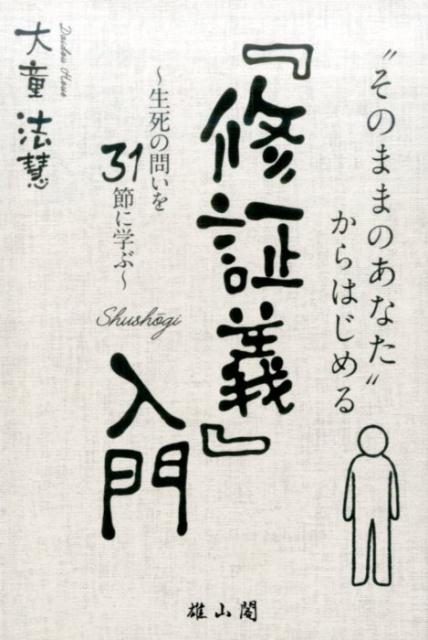 〝そのままのあなた〟
からはじめる
『修証義』
Shushōgi
入門
〜生死の問いを
31節に学ぶ〜
Daidou Houe
大童法慧
雄山閣